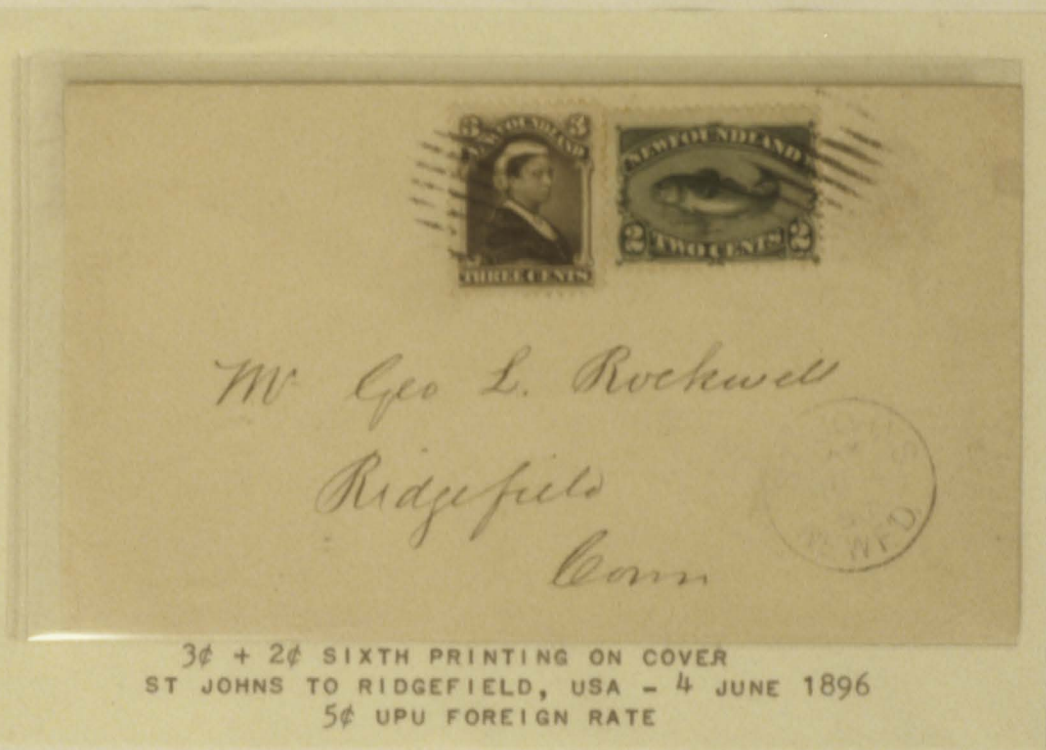 3 3
NEWFOUNDLAND
THREE CENTS
NEWFOUNDLAND
2 TWO CENTS 2
Mr Geo L. Rockwell
Ridgefield
Conn
NEWF'D.
3¢ + 2¢ SIXTH PRINTING ON COVER
ST JOHNS TO RIDGEFIELD, USA - 4 JUNE 1896
5¢ UPU FOREIGN RATE